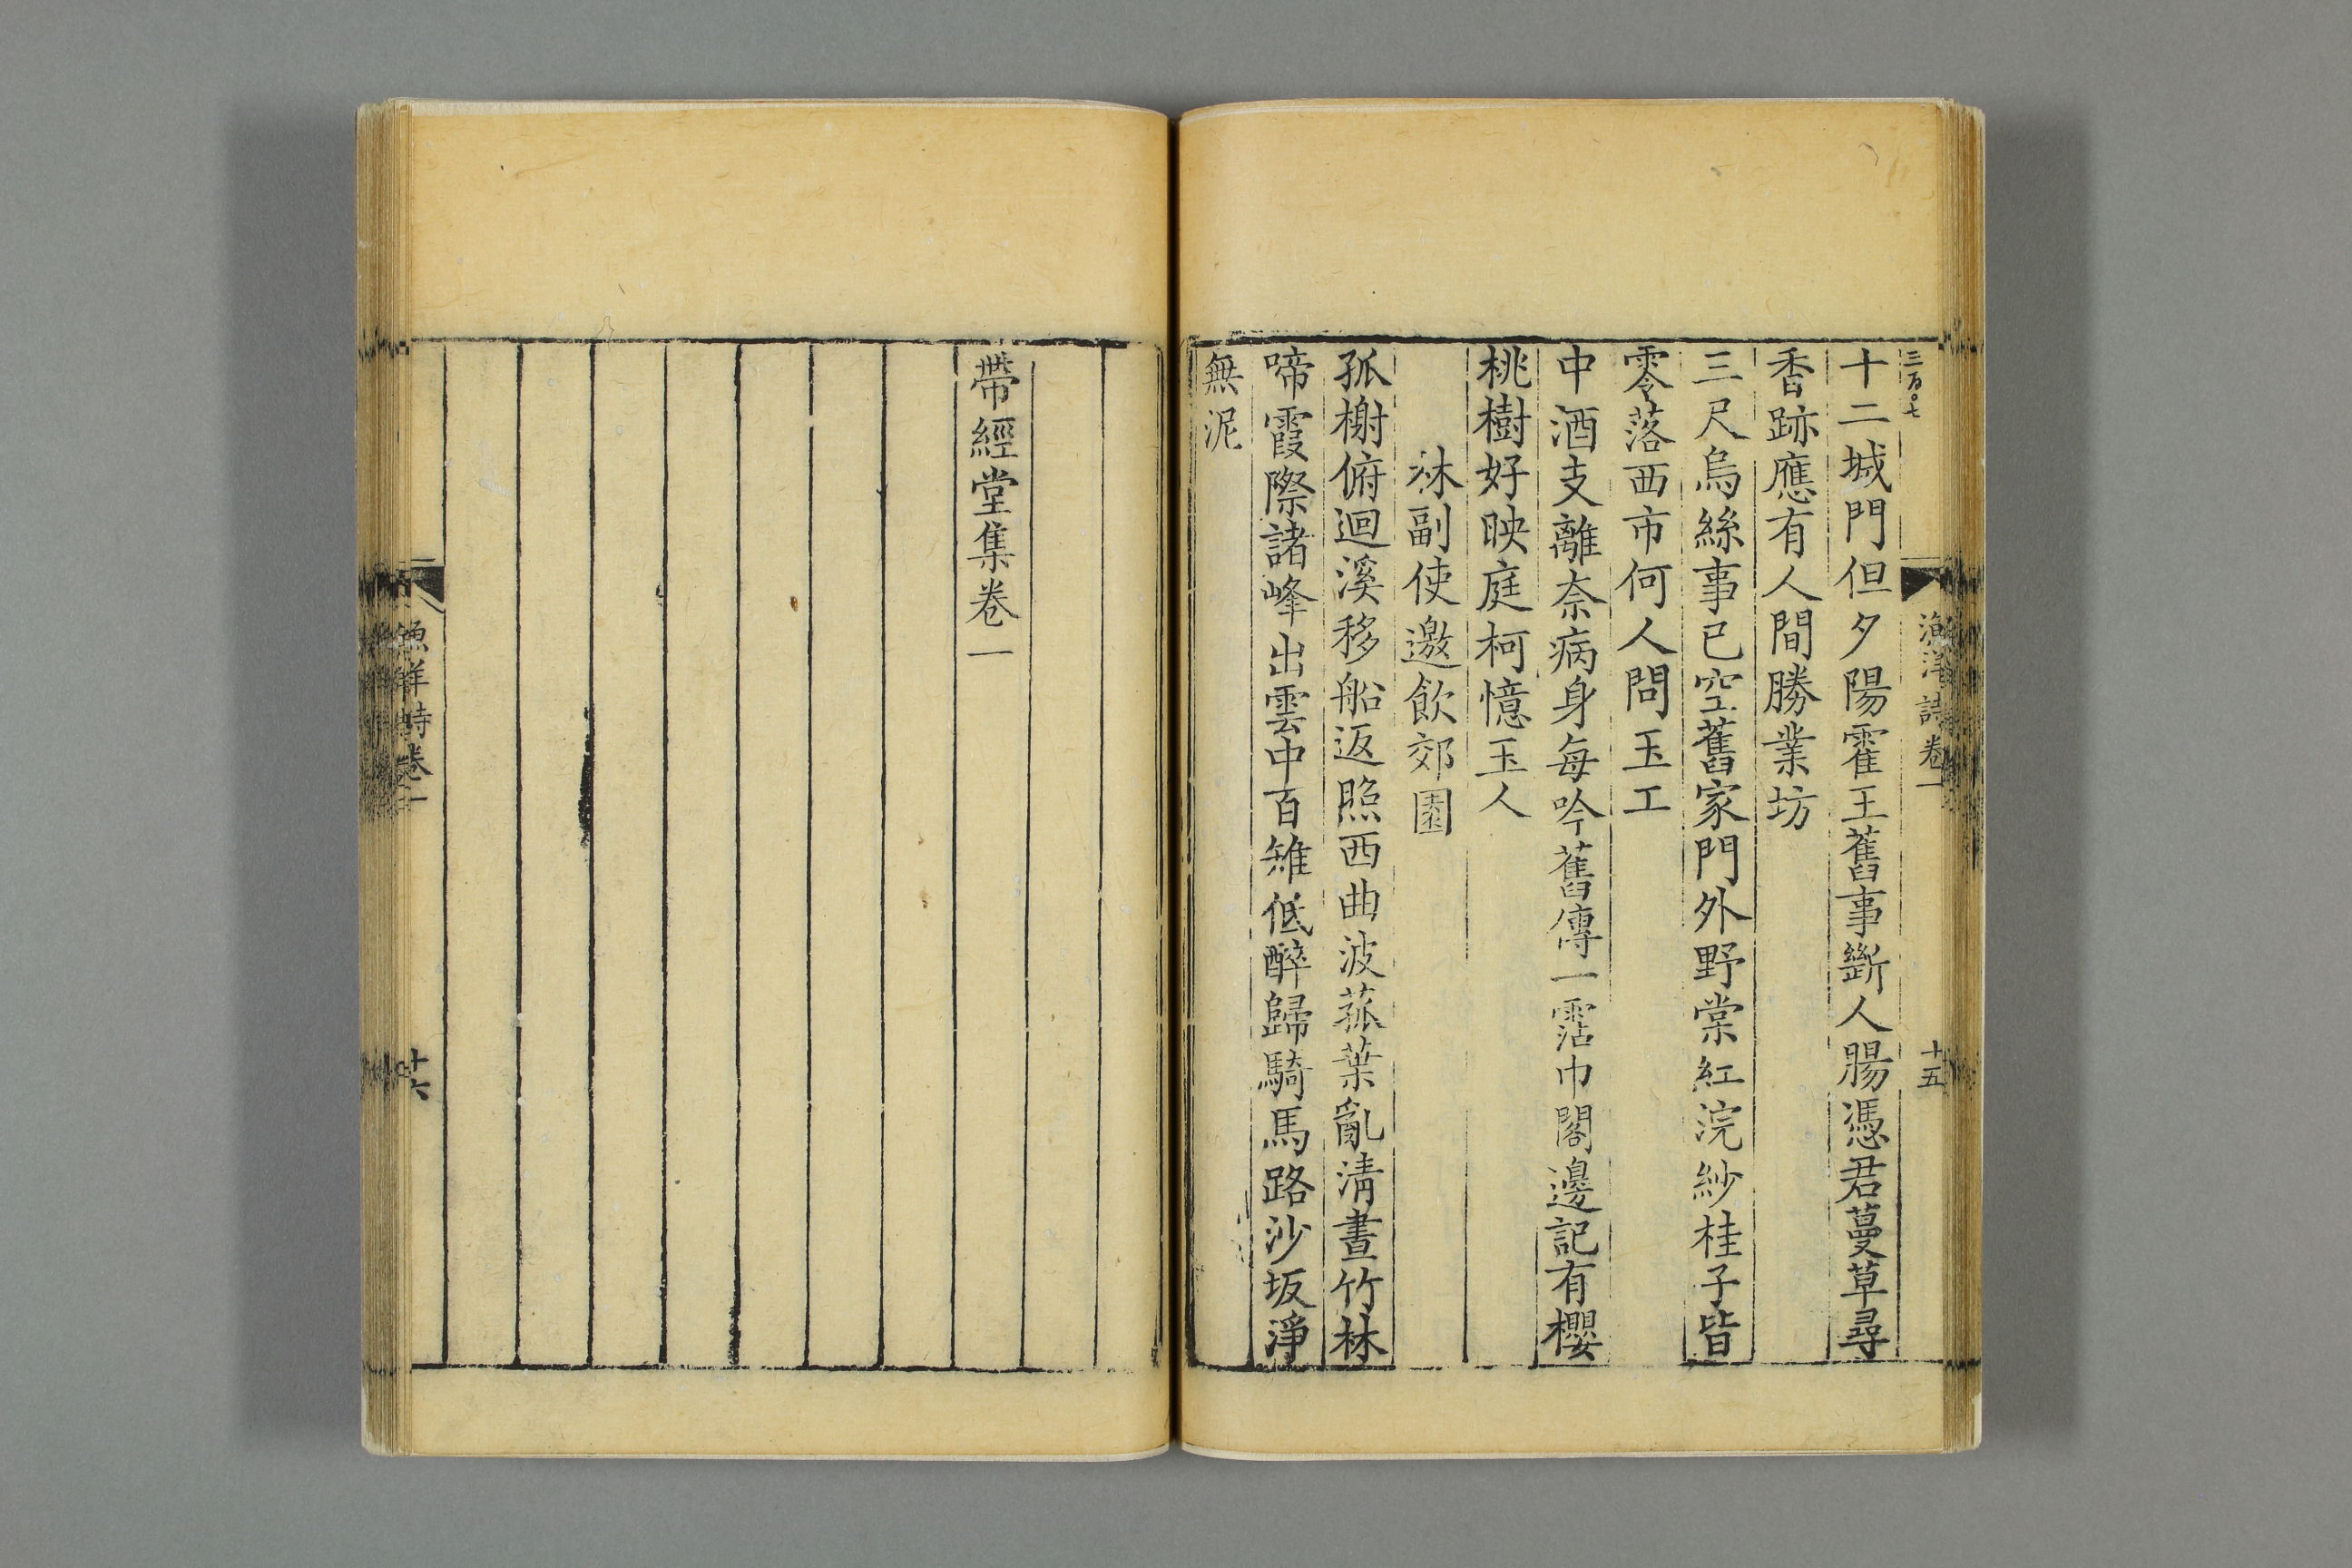 三百〇七
漁洋詩卷一
十五
十二城門但夕陽霍王舊事斷人腸憑君蔓草尋
香跡應有人間勝業坊
三尺烏絲事已空舊家門外野棠紅浣紗桂子皆
零落西市何人問玉工
中酒支離奈病身每吟舊傳一霑巾閣邊記有櫻
桃樹好映庭柯憶玉人
沐副使邀飲郊園
孤榭俯迴溪移船返照西曲波菰葉亂清晝竹林
啼霞際諸峰出雲中百雉低醉歸騎馬路沙坂淨
無泥
帶經堂集卷一
漁洋詩卷一
十六